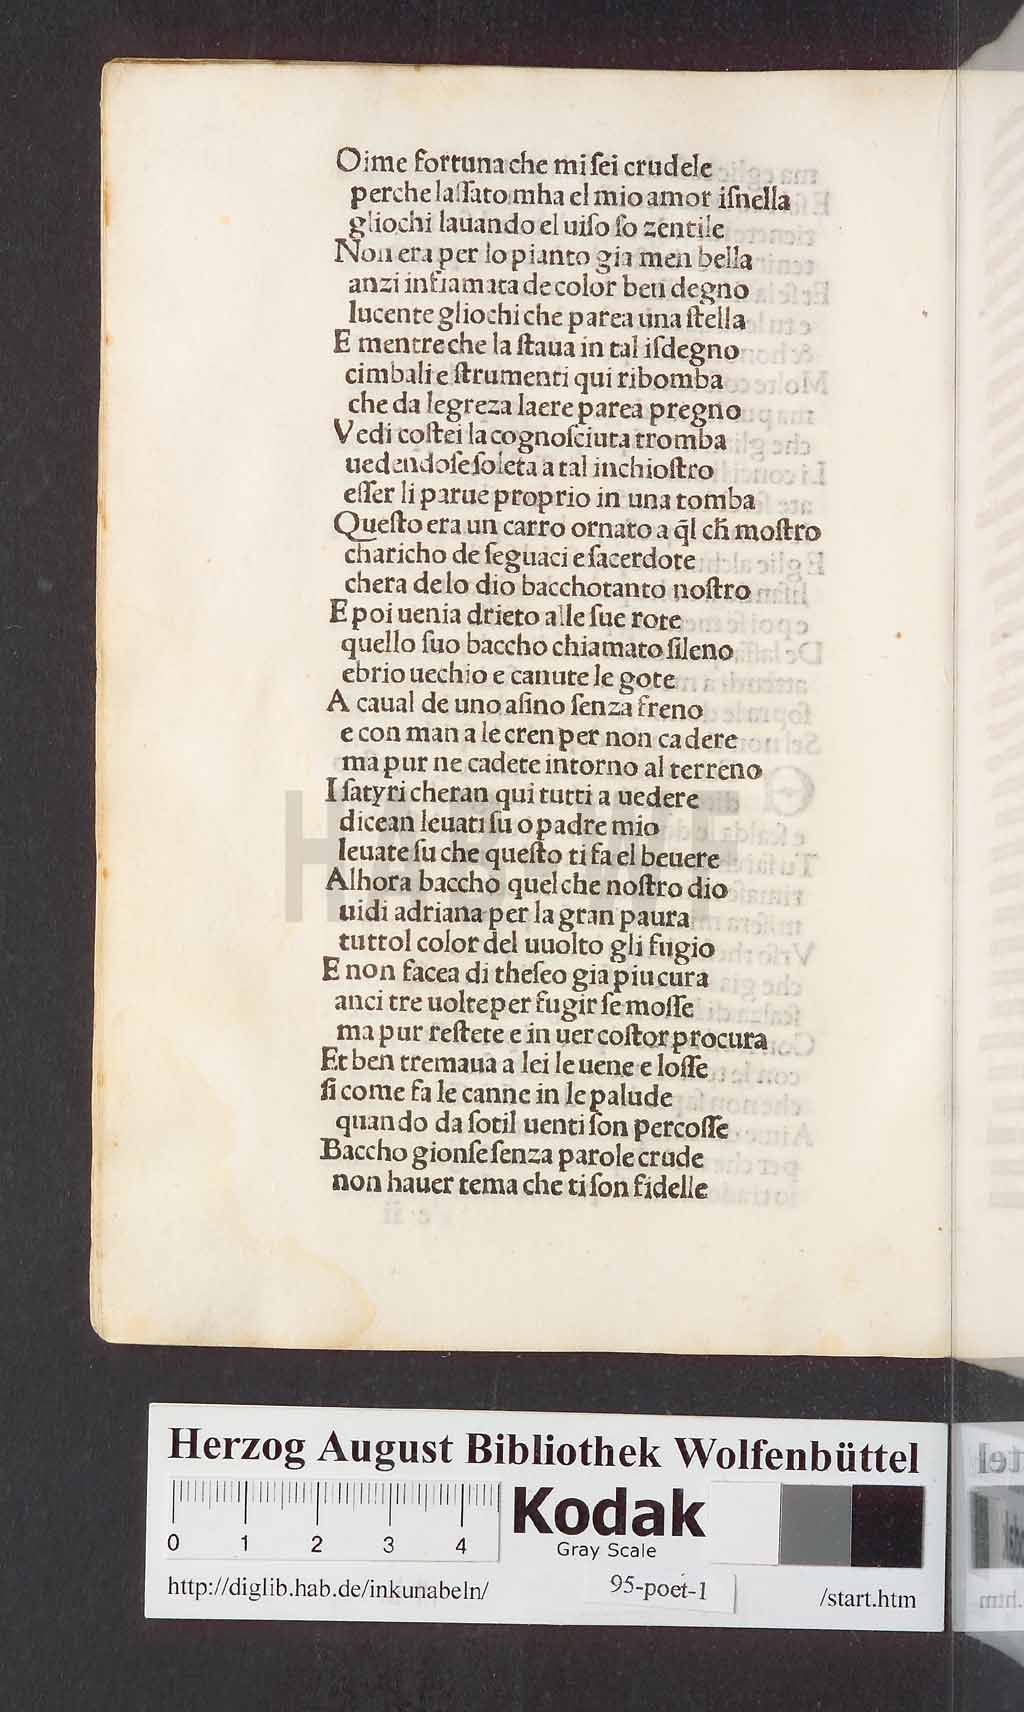 Oime fortuna che mi ſei crudele
perche laſſato mha el mio amor iſnella
gliochi lauando el uiſo ſo zentile
Non era per lo pianto gia men bella
anzi infiamata de color ben degno
lucente gliochi che parea una ſtella
E mentre che la ſtaua in tal iſdegno
cimbali e ſtrumenti qui ribomba
che da legreza laere parea pregno
Vedi coſtei la cognoſciuta tromba
uedendoſe ſoleta a tal inchioſtro
eſſer li parue proprio in una tomba
Queſto era un carro ornato a q̄l ch̄ moſtro
charicho de ſeguaci e ſacerdote
chera de lo dio baccho tanto noſtro
E poi uenia drieto alle ſue rote
quello ſuo baccho chiamato ſileno
ebrio uechio e canute le gote
A caual de uno aſino ſenza freno
e con man a le cren per non cadere
ma pur ne cadete intorno al terreno
I ſatyri cheran qui tutti a uedere
dicean leuati ſu o padre mio
leuate ſu che queſto ti fa el beuere
Alhora baccho quel che noſtro dio
uidi adriana per la gran paura
tuttol color del uuolto gli fugio
E non facea di theſeo gia piu cura
anci tre uolte per fugir ſe moſſe
ma pur reſtete e in uer coſtor procura
Et ben tremaua a lei le uene e loſſe
ſi come fa le canne in le palude
quando da ſotil uenti ſon percoſſe
Baccho gionſe ſenza parole crude
non hauer tema che ti ſon fidelle
HAB WF
Herzog August Bibliothek Wolfenbüttel
0 1 2 3 4
Kodak
Gray Scale
http://diglib.hab.de/inkunabeln/
95-poet-1
/start.htm